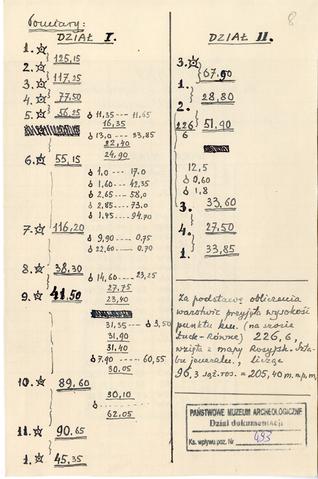 Pomiary:
8
DZIAŁ I.
1. ☆
125,15
2. ☆
117,25
3. ☆
4. ☆ 77,50
5. ☆ 56,25
♁ 11,35 --- 11,65
16,35
♁ 13,0 --- 53,85
22,40
24,90
6. ☆ 55,15
♁ 1,0 --- 17,0
♁ 1,60 --- 42,35
♁ 2,65 --- 58,0
♁ 2,85 --- 73,0
♁ 1,45 --- 94,70
7. ☆ 116,20
♁ 9,90 ---- 0,75
♁ 22,60 --- 0,70
8. ☆ 38,30
♁ 14,60 ---- 23,25
27,75
9. ☆ 41,50
23,40
31,35 --- ♁ 3,50
31,90
31,40
♁ 7,90 ---- 60,55
30,05
10. ☆ 89,60
30,10
♁ --------
62,05
11. ☆ 90,65
1. ☆ 45,35
DZIAŁ II.
3. ☆
67,90
1.
28,80
2.
226 51,90
6
12,5
♁ 0,60
♁ 1,8
3. 33,60
4. 27,50
1. 33,85
Za podstawę obliczenia
warstwic przyjęto wysokość
punktu km. (na szosie
Łuck-Równe) 226,6,
wziętą z mapy Rosyjsk. Szta-
bu jeneraln., licząc
96,3 sąż. ros. = 205,40 m.n.p.m.
PAŃSTWOWE MUZEUM ARCHEOLOGICZNE
Dział dokumentacji
Ks. wpływu poz. Nr 493